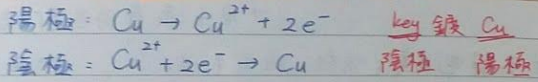 陽極：Cu → Cu²⁺ + 2e⁻ key 鍍 Cu
陰極：Cu²⁺ + 2e⁻ → Cu 陰極 陽極